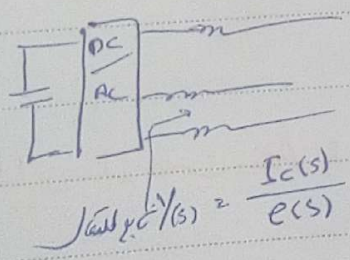 DC
AC
تابع انتقال Y(s) = Ic(s) / e(s)